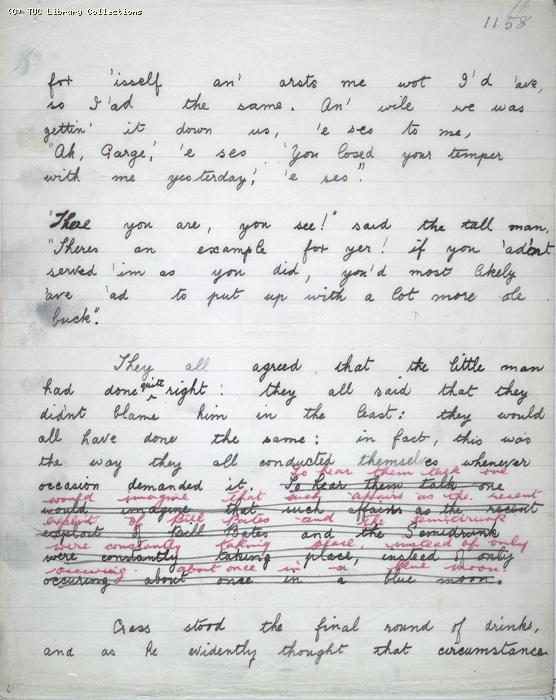 (C) TUC Library Collections
1158
for 'isself an' arsts me wot I'd 'ave,
so I 'ad the same. An' wile we was
gettin' it down us, 'e ses to me,
"Ah, Garge', 'e ses 'You losed your temper
with me yesterday', 'e ses".
"There you are, you see!" said the tall man,
"Theres an example for yer! if you 'adn't
served 'im as you did, you'd most likely
'ave 'ad to put up with a lot more ole
buck".
They all agreed that the little man
had done quite right: they all said that they
didnt blame him in the least: they would
all have done the same: in fact, this was
the way they all conducted themselves whenever
To hear them talk one
occasion demanded it. To hear them talk one
would imagine that such affairs as the recent
would imagine that such affairs as the recent
exploit of Bill Bates and the Semidrunk
exploit of Bill Bates and the Semidrunk
were constantly taking place, instead of only
were constantly taking place, instead of only
occuring about once in a blue moon.
occuring about once in a blue moon.
Crass stood the final round of drinks,
and as he evidently thought that circumstance